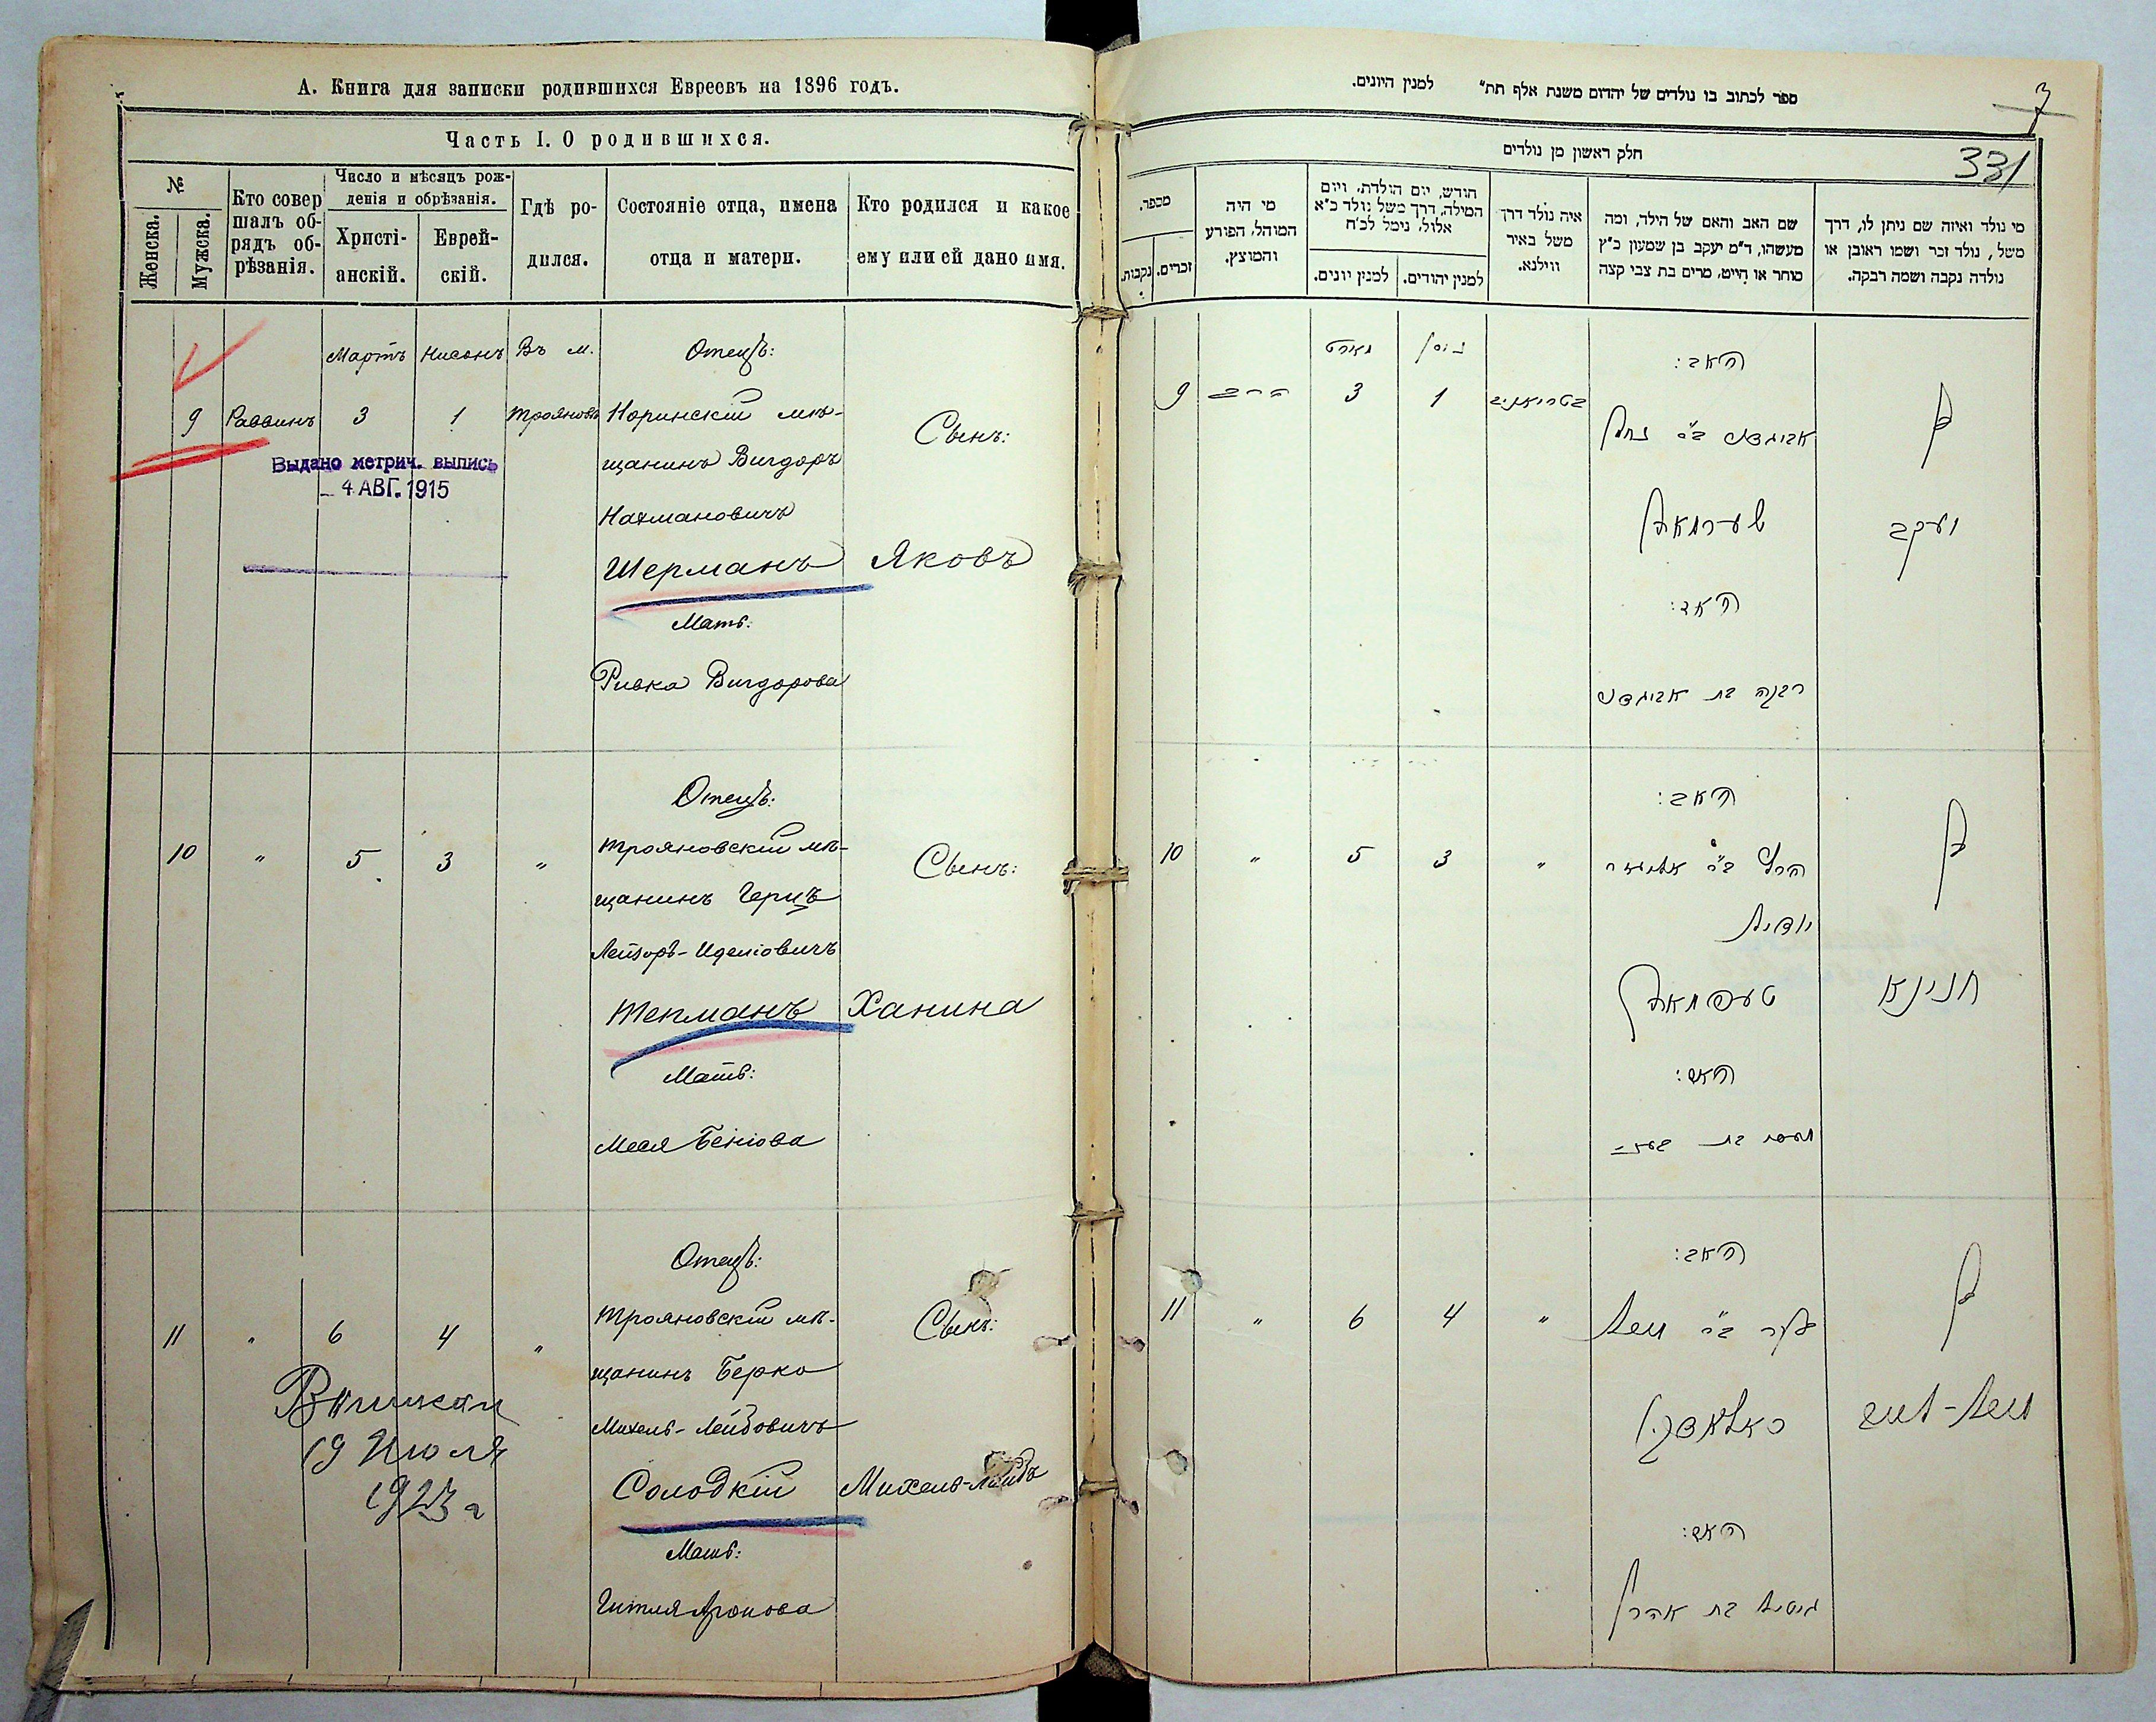 А. Книга для записки родившихся Евреевъ на 1896 годъ.
Часть I. О родившихся.
№
Женска.
Мужска.
Кто совершалъ об-
рядъ об-
рѣзанія.
Число и мѣсяцъ рож-
денія и обрѣзанія.
Христі-
анскій.
Еврей-
скій.
Гдѣ ро-
дился.
Состояніе отца, имена
отца и матери.
Кто родился и какое
ему или ей дано имя.
Мартъ Нисанъ Въ м. Отецъ:
9 Раввинъ 3 1 Трояновъ Норинскій мѣ-
щанинъ Вигдоръ
Нахмановичъ
Шерманъ
Мать:
Ривка Вигдорова
Сынъ:
Яковъ
Выдано метрич. выпись
4 АВГ. 1915
Отецъ:
10 " 5 3 " Трояновскій мѣ-
щанинъ Герцъ
Лейзоръ-Иделіовичъ
Тепманъ
Мать:
Меея Бенюва
Сынъ:
Ханина
Отецъ:
11 " 6 4 " Трояновскій мѣ-
щанинъ Берко
Михель-Лейбовичъ
Солодкій
Мать:
Гитля Аронова
Сынъ:
Михель-Лейбъ
19 Июля
1923 г
ספר לכתוב בו נולדים של יהדום משנת אלף תת" למנין היונים.
3
331
חלק ראשון מן נולדים
מספר.
נקבות.
זכרים.
מי היה
המוהל, הפורע
והמוצץ.
חודש, יום הולדת, ויום
המילה, דרך משל נולד כ"א
אלול, נימל לכ"ח
למנין יונים.
למנין יהודים.
איה נולד דרך
משל באיר
ווילנא.
שם האב והאם של הילד, ומה
מעשהו, ד"מ יעקב בן שמעון כ"ץ
סוחר או חיים, מרים בת צבי קצה
מי נולד ואיזה שם ניתן לו, דרך
משל, נולד זכר ושמו ראובן או
נולדה נקבה ושמה רבקה.
מארט ניסן האב:
9 הרב 3 1 בטריאניב אביגדור ב"ר נחמן
שערמאן
האם:
רבקה בת אביגדור
בן
יעקב
האב:
10 " 5 3 " הרץ ב"ר אליעזר
יודיל
טעפמאן
האם:
בן
חנינא
האב:
11 " 6 4 "
סאלאדקין
האם:
גיטיל בת אהרן
בן